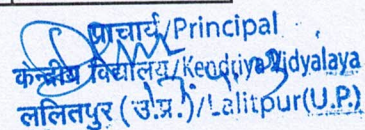 प्राचार्य/Principal
केन्द्रीय विद्यालय/Kendriya Vidyalaya
ललितपुर (उ.प्र.)/Lalitpur(U.P.)